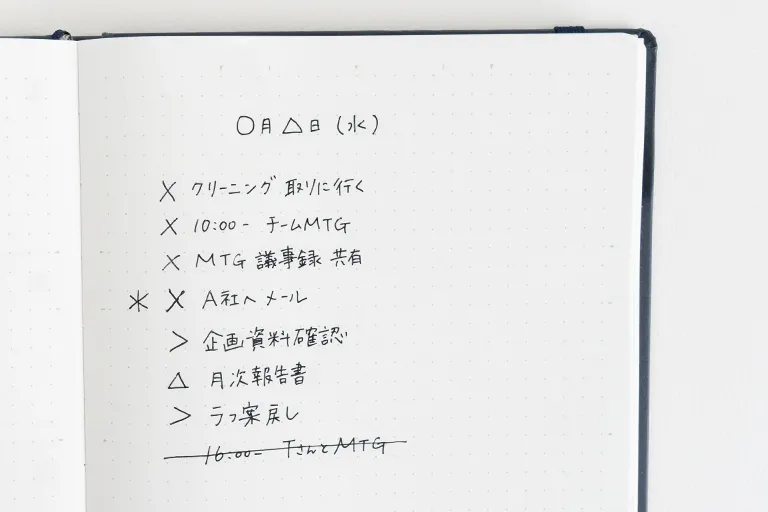 〇月△日(水)
× クリーニング 取りに行く
× 10:00- チームMTG
× MTG 議事録 共有
* × A社へメール
> 企画資料確認
△ 月次報告書
> ラフ案戻し
16:00- TさんとMTG